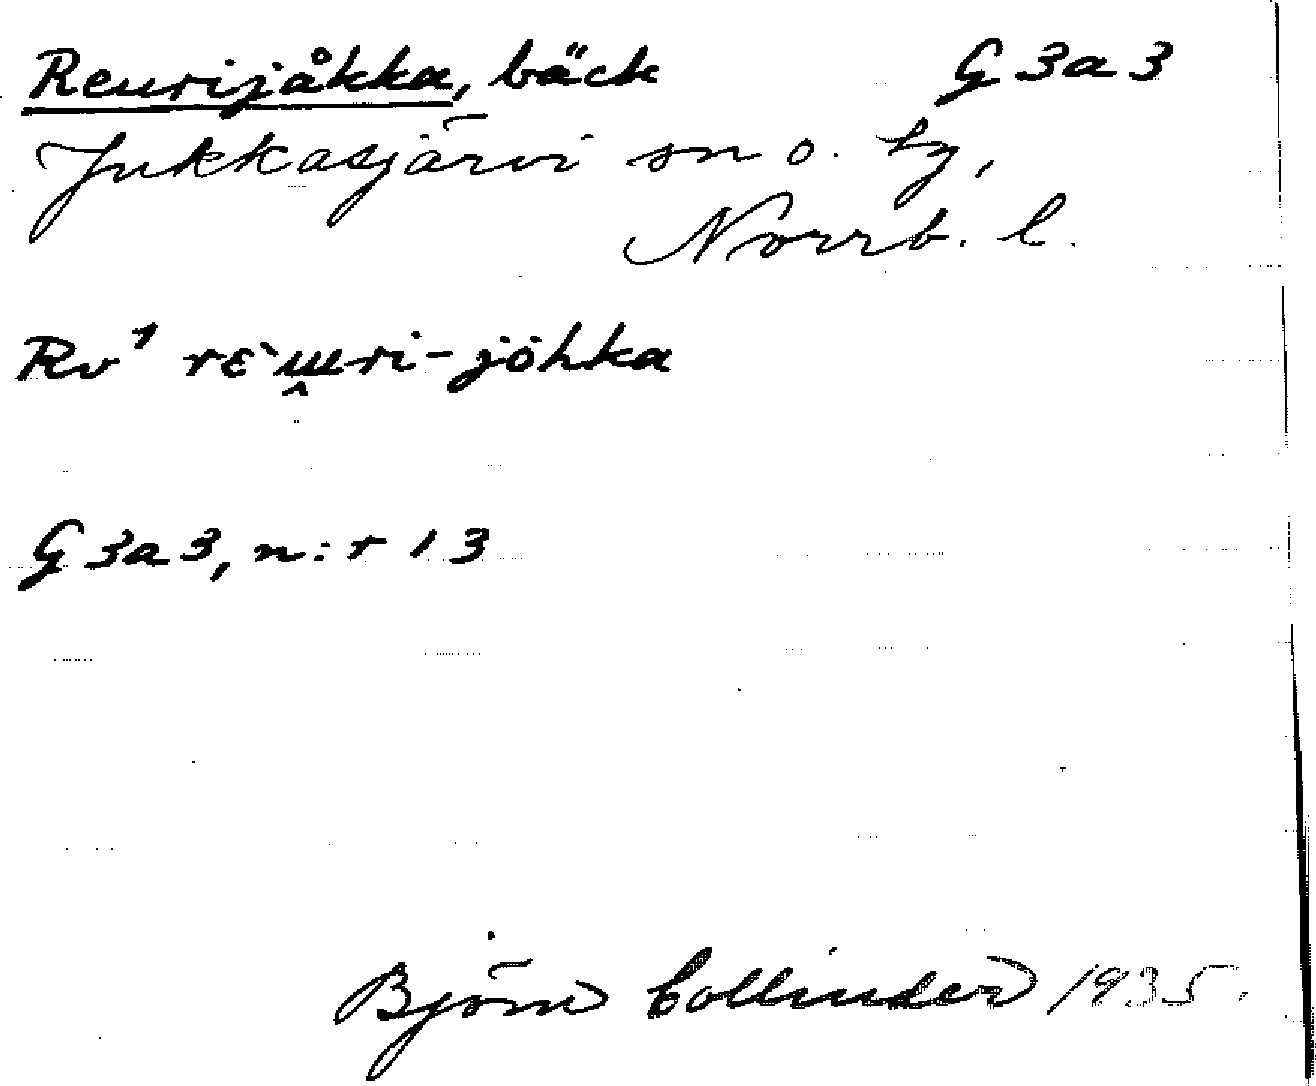 Reurijåkka, bäck G3a3
Jukkasjärvi sn o. tg,
Norrb. l.
Rv¹ rɛ̀ɯ̭ri-jòhka
G3a3, n:r 13
Björn Collinder 1935.